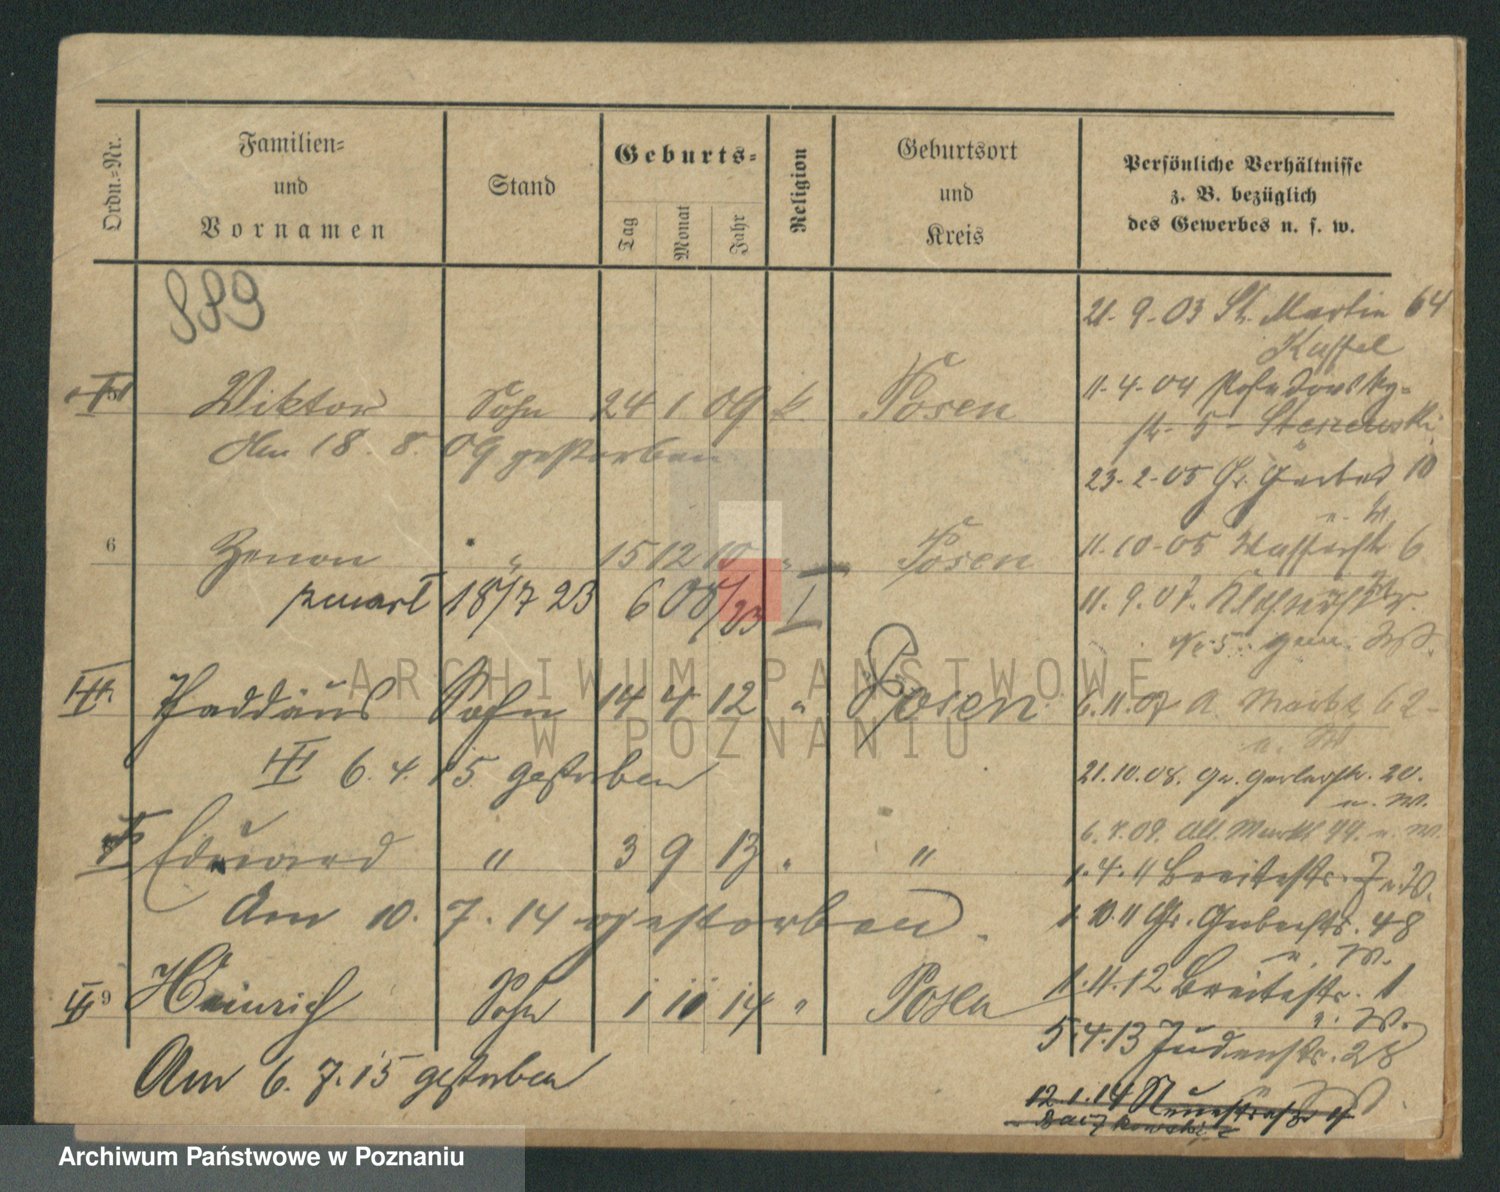 Ordn.=Nr.
Familien=
und
Vornamen
Stand
Geburts=
Tag
Monat
Jahr
Religion
Geburtsort
und
Kreis
Persönliche Verhältnisse
z. B. bezüglich
des Gewerbes u. s. w.
889
Viktor Sohn 24 1 09 k. Posen
Am 18. 8. 09 gestorben
6 Zenon " 15 12 10 " Posen
zmarł 18/7 23
Thaddäus Sohn 14 4 12 " Posen
6. 4. 15. gestorben
Eduard " 3 9 13 " "
Am 10. 7. 14 gestorben.
9 Heinrich Sohn 1 10 14 " Posen
Am 6. 7. 15 gestorben
21. 9. 03 St. Martin 64
Kassel
11. 4. 04
str. 5
23. 2. 05 Gr. Gerber 10
11. 10. 05 Wasserstr 6
11. 9. 07.
6. 11. 07 A. Markt 62
21. 10. 08. Gr. Gerberstr. 20.
u. W.
6. 7. 09. Alt. Markt 99. u. W.
1. 4. 11 Breitestr. 7 u. W.
1. 10. 11 Gr. Gerberstr. 48
u. W.
1. 11. 12 Breitestr. 1
u. W.
5. 4. 13 Judenstr. 28
12. 1. 14 Neuestraße
ARCHIWUM PAŃSTWOWE
W POZNANIU
Archiwum Państwowe w Poznaniu